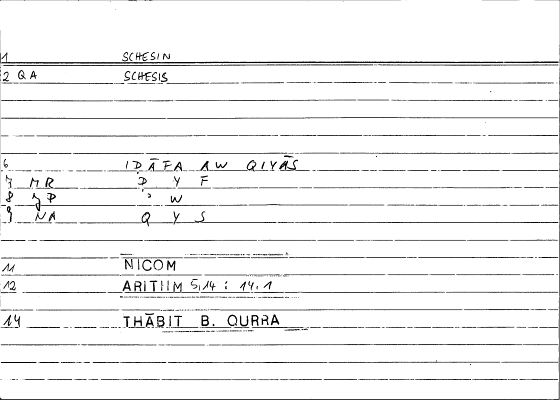 1 SCHESIN
2 QA SCHESIS
6 IḌĀFA AW QIYĀS
7 MR Ḍ Y F
8 JP ʾ W
9 NA Q Y S
11 NICOM
12 ARITHM 5,14 : 14.1
14 THĀBIT B. QURRA